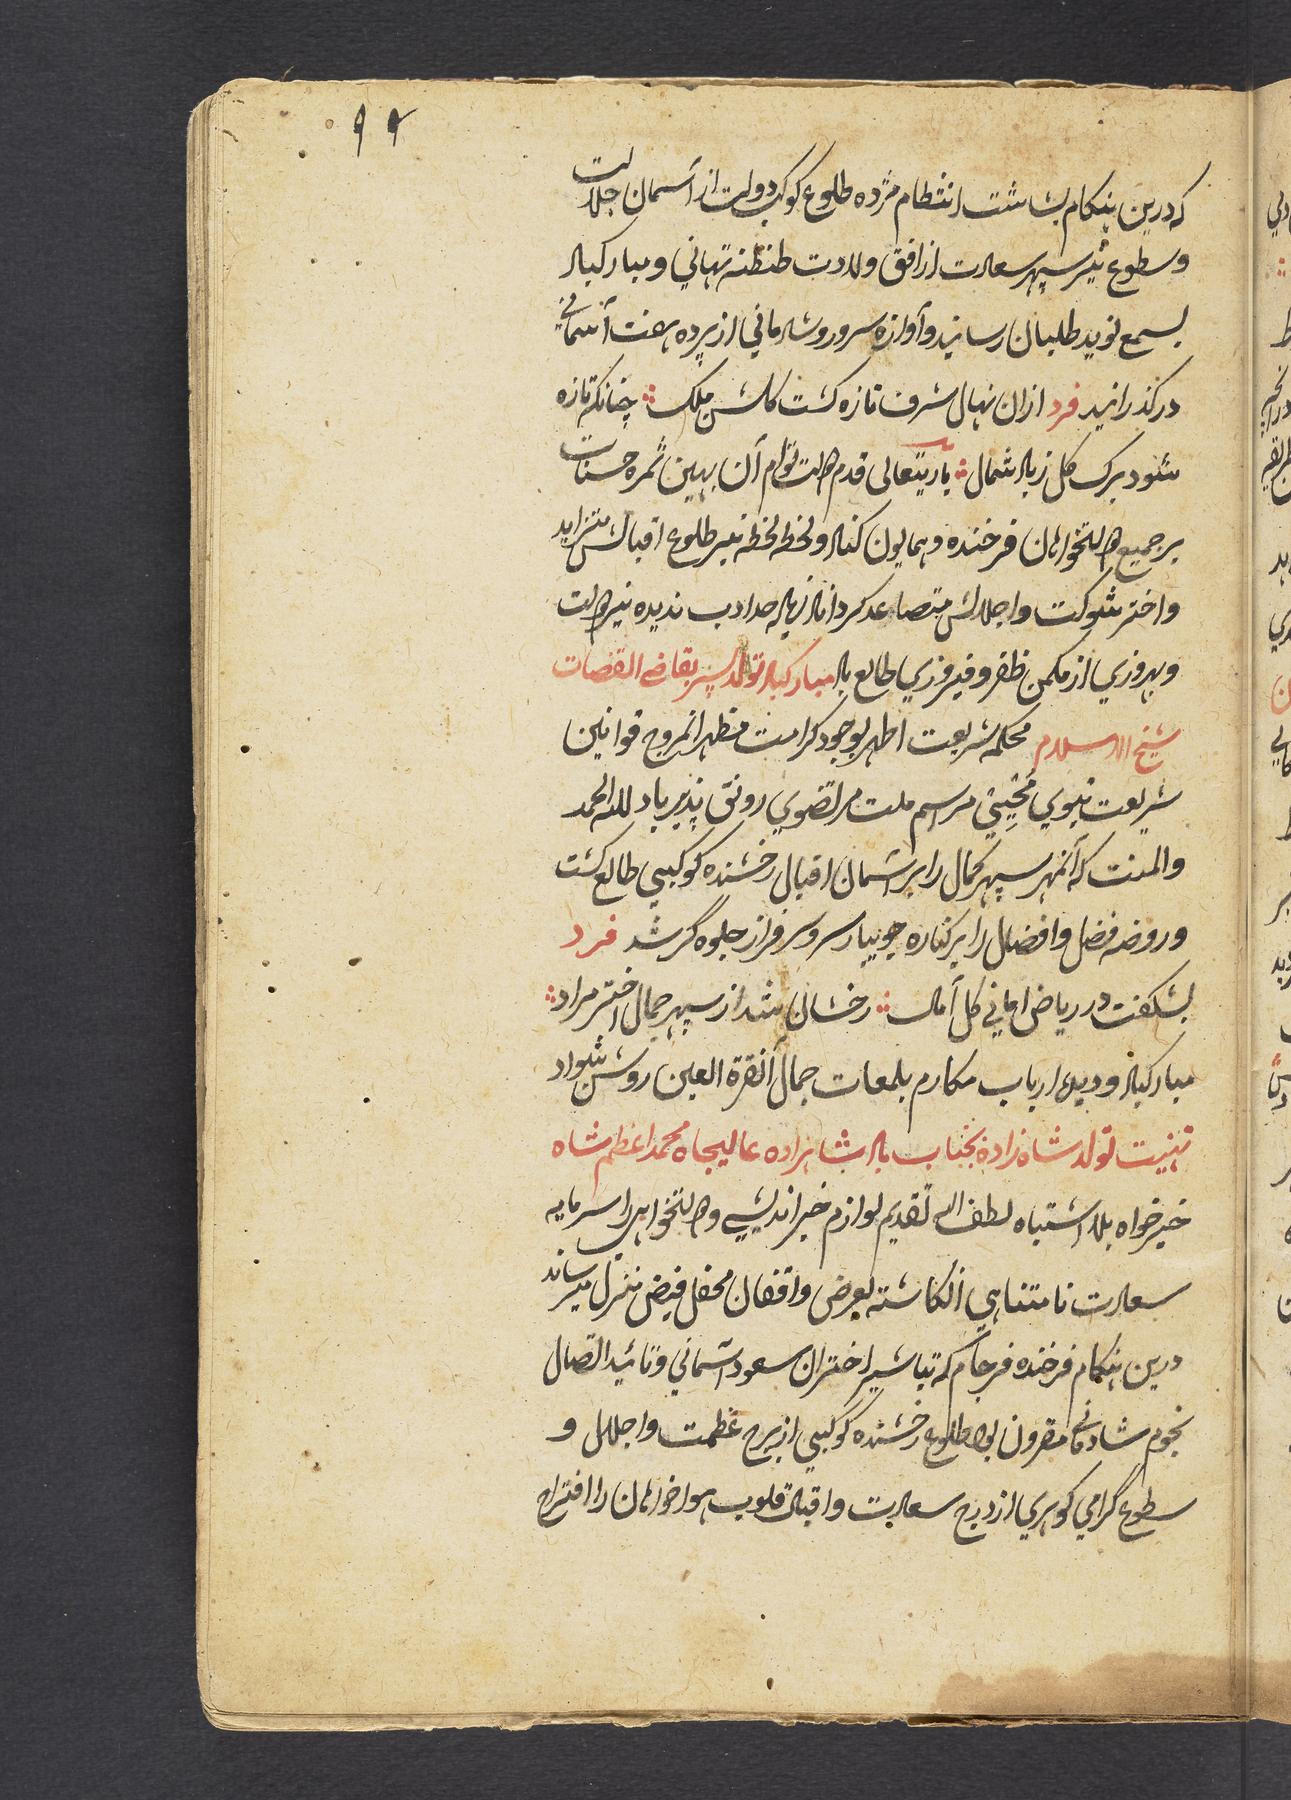 ۹۴
که درین هنکام بشاشت انتظام مژده طلوع کوکب دولت از آسمان جلالت
وسطوع نیر سپهر سعادت از افق ولادت طنطنه تهاني ومبارکباد
بسمع نوید طلبان رسانید وآوازه سرور وشادماني از پرده هفت آسماني
درکذرانید فرد ازان نهال شرف تازه کشت کلشن ملک چنانکه تازه
شود برک کل زباد شمال باریتعالی قدم دولت توام آن بهین ثمره حسنات
بر جمیع دولتخواهان فرخنده وهمایون کناد ولحظه لحظه نیر طلوع اقبالش متزاید
واختر شوکت واجلالش متصاعد کرداناد زیاده حد ادب ندیده نیر دولت
وبهروزي از مکمن ظفر وفیروزي طالع باد مبارکباد تولد پسر بقاضے القضات
شیخ الاسلام محکمه شریعت اطهر بوجود کرامت مظهر انمروج قوانین
شریعت نبوي محیي مراسم ملت مرتضوي رونق پذیر باد لله الحمد
والمنت که آنمهر سپهر کمال را بر آسمان اقبال رخشنده کوکبي طالع کشت
وروضه فضل وافضال را بر کناره جویبار سرو سرفراز جلوه گر شد فرد
بشکفت در ریاض اماني کل آمال رخشان شد از سپهر جمال اختر مراد
مبارکباد ودیده ارباب مکارم بلمعات جمال آنقرة العین روشن شواد
تهنیت تولد شاه زاده بجناب بادشاهزاده عالیجاه محمد اعظم شاه
خیرخواه بلا اشتباه لطف الله تقدیم لوازم خیر اندیشي ودولتخواهي را سرمایه
سعادت نامتناهي انکاشته بعرض واقفان محفل فیض منزل میرساند
درین هنکام فرخنده فرجام که تباشیر اختران سعود آسماني وتائید اتصال
نجوم شادماني مقرون بود طلوع رخشنده کوکبي از برج عظمت واجلال و
سطوع گرامي کوهري از درج سعادت واقبال قلوب هواخواهان را افتراح